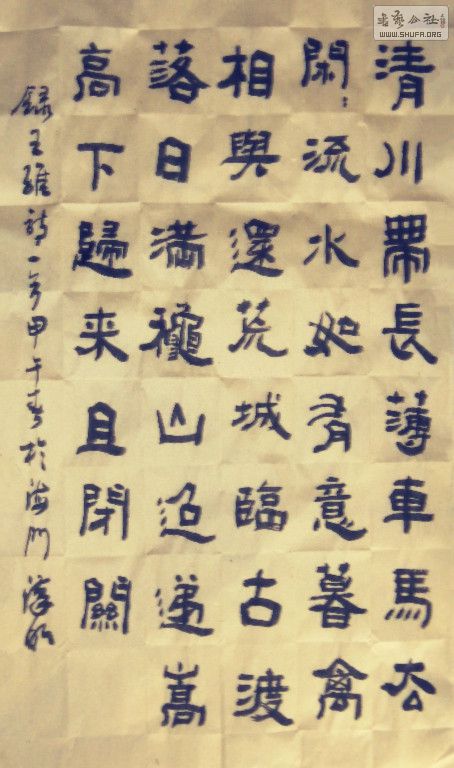 清川帶長薄車馬去
閑:流水如有意暮禽
相與還荒城臨古渡
落日满穐山迢遞嵩
高下歸来且閉關
録王維詩一首甲午春於海門
書藝公社
WWW.SHUFA.ORG